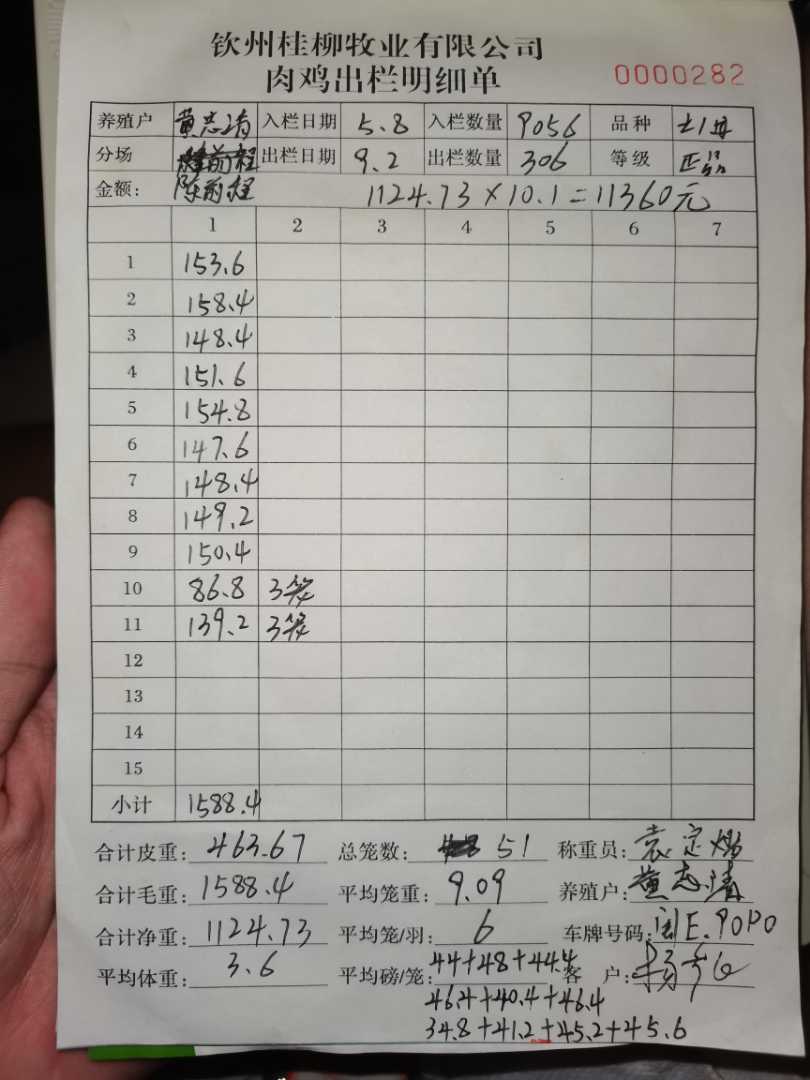 钦州桂柳牧业有限公司
肉鸡出栏明细单 0000282
养殖户 黄志清 入栏日期 5.8 入栏数量 9056 品种 土1母
分场 出栏日期 9.2 出栏数量 306 等级 正品
金额: 陈前程 1124.73×10.1=11360元
1 2 3 4 5 6 7
1 153.6
2 158.4
3 148.4
4 151.6
5 154.8
6 147.6
7 148.4
8 149.2
9 150.4
10 86.8 3笼
11 139.2 3笼
12
13
14
15
小计 1588.4
合计皮重: 463.67 总笼数: 51 称重员: 袁定
合计毛重: 1588.4 平均笼重: 9.09 养殖户: 黄志清
合计净重: 1124.73 平均笼/羽: 6 车牌号码: 闽E.90P0
平均体重: 3.6 平均磅/笼: 44+48+44.4 客户: 杨
46.4+40.4+46.4
34.8+41.2+45.2+45.6